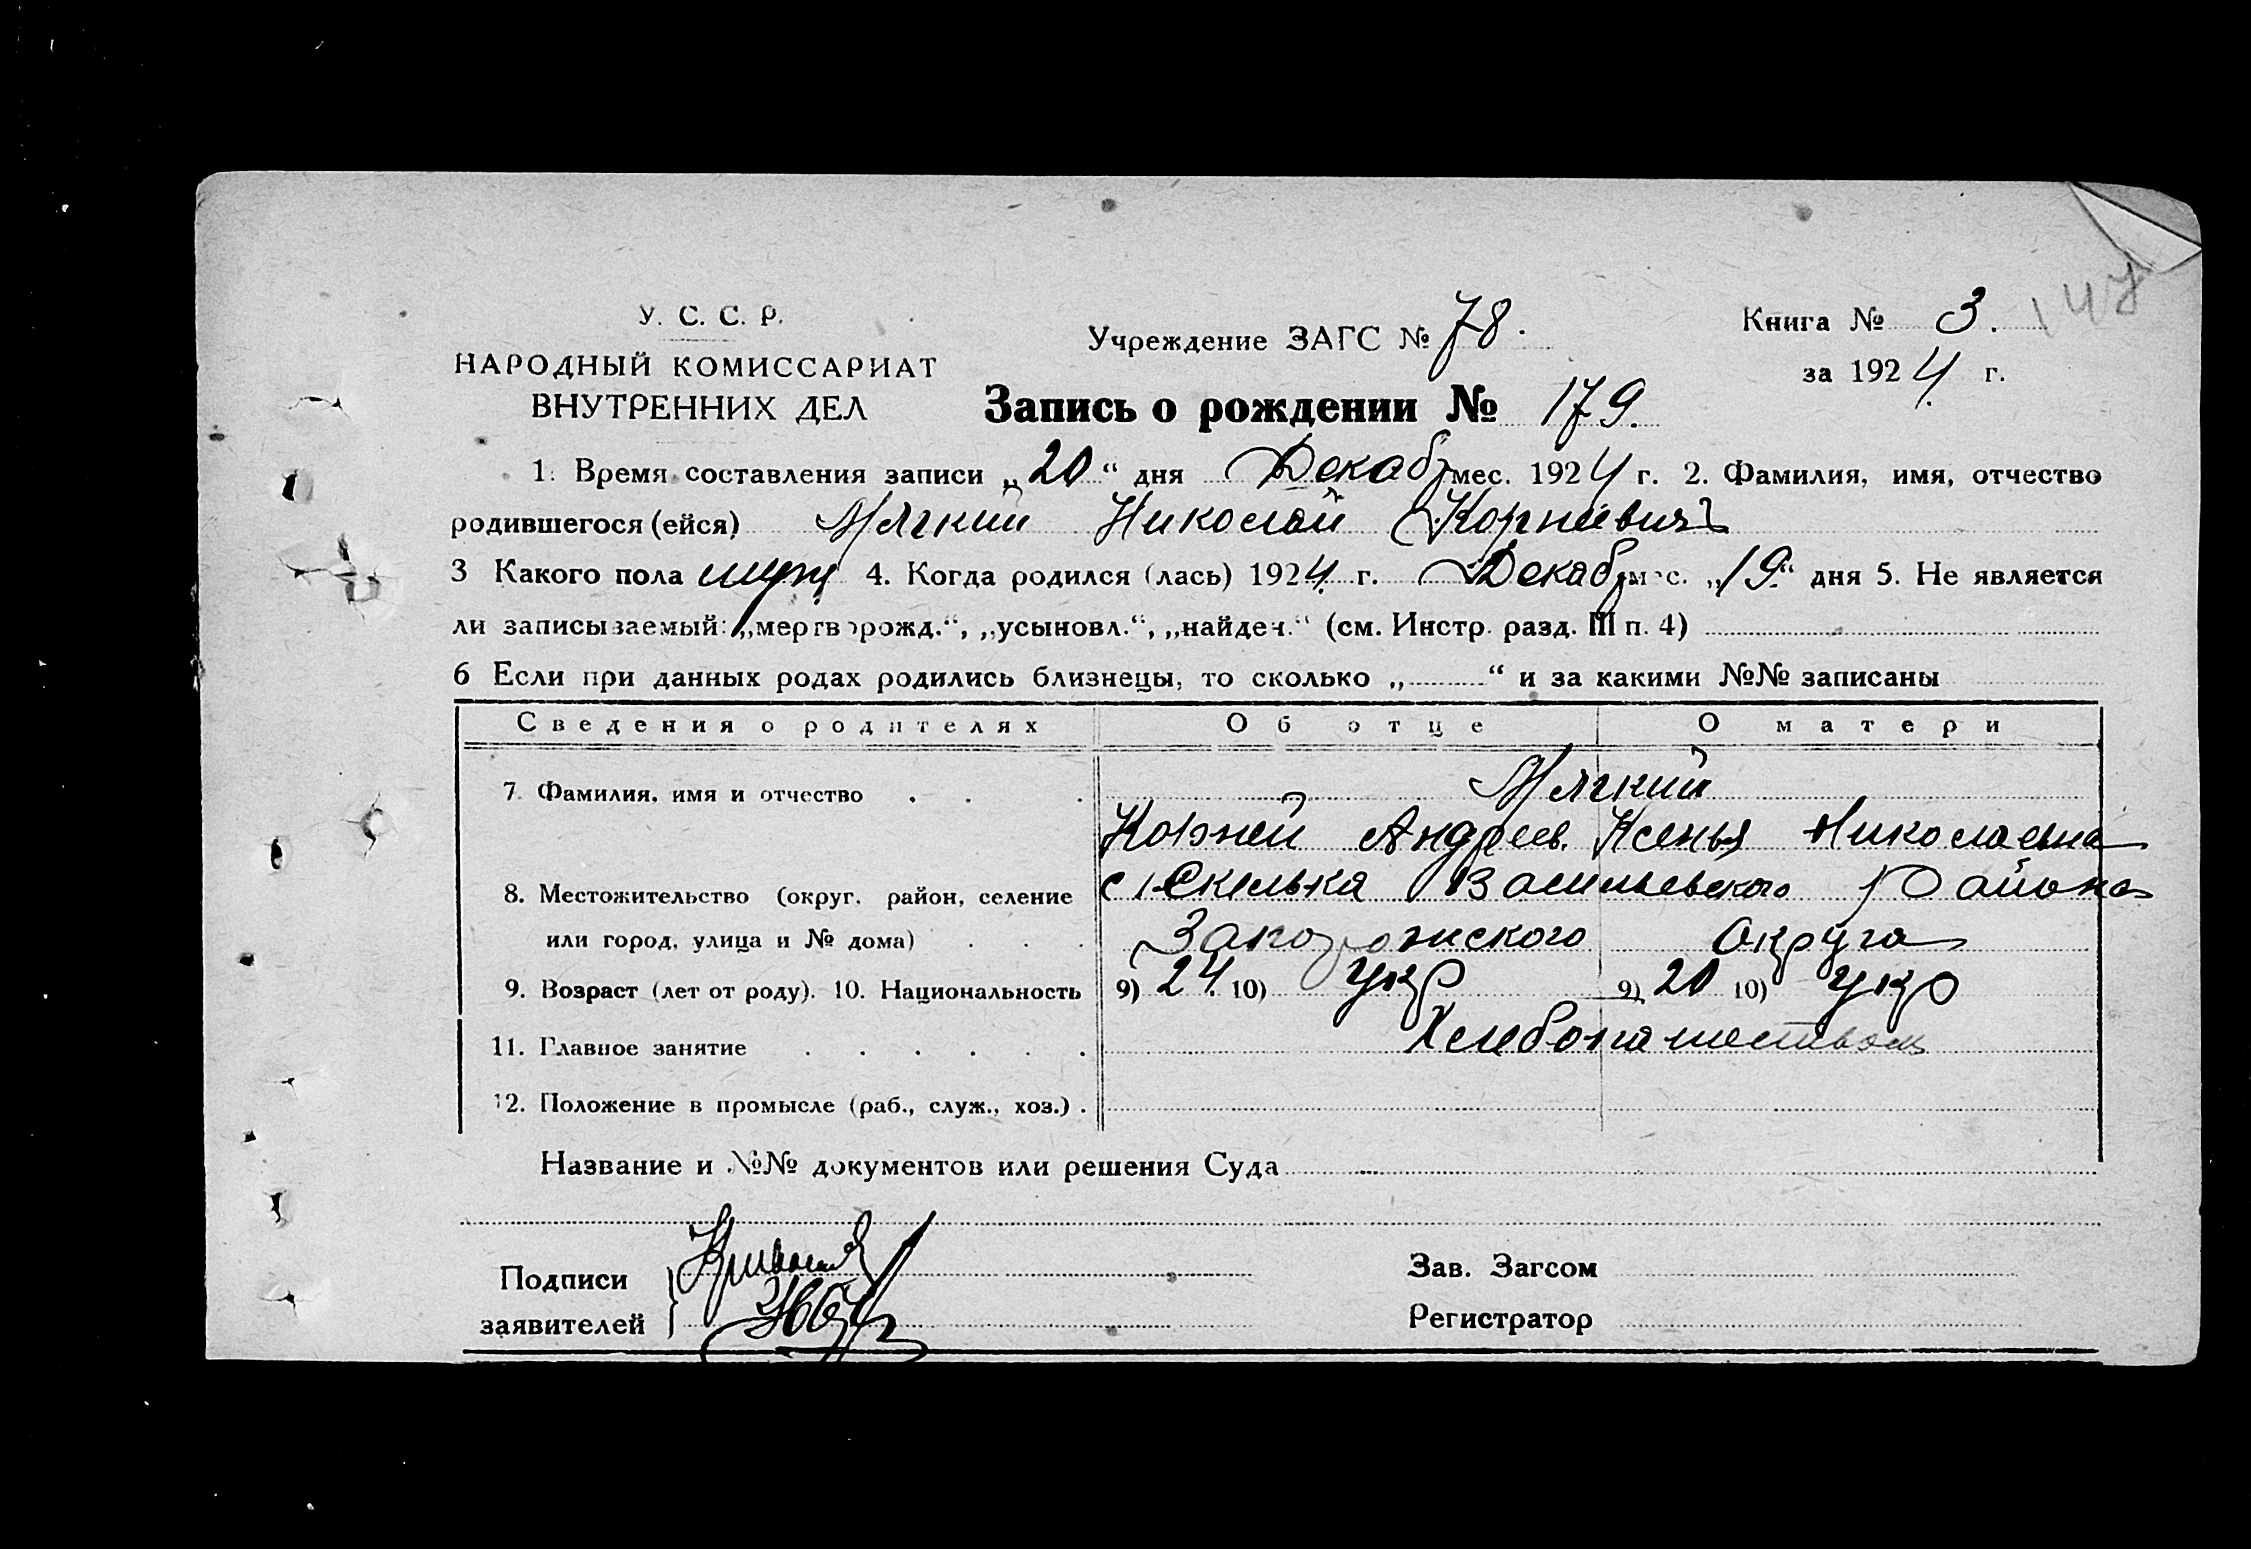 147
У. С. С. Р.
НАРОДНЫЙ КОМИССАРИАТ
ВНУТРЕННИХ ДЕЛ
Учреждение ЗАГС № 78.
Книга № 3.
за 1924 г.
Запись о рождении № 179.
1. Время составления записи „20“ дня Декабр мес. 1924 г. 2. Фамилия, имя, отчество
родившегося (ейся) Мягкий Николай Корнеевичъ
3 Какого пола муж 4. Когда родился (лась) 1924 г. Декабр мес. „19“ дня 5. Не является
ли записываемый: „мертворожд.“, „усыновл.“, „найден.“ (см. Инстр. разд. III п. 4)
6 Если при данных родах родились близнецы, то сколько „ “ и за какими №№ записаны
Сведения о родителях Об отце О матери
7. Фамилия, имя и отчество Мягкий
Корней Андреев. Ксенья Николаевна
8. Местожительство (округ, район, селение с. Скелька Васильевского Района
или город, улица и № дома) Запорожского Округа
9. Возраст (лет от роду). 10. Национальность 9) 24. 10) Укр 9) 20 10) Укр
11. Главное занятие Хлебопашеством
12. Положение в промысле (раб., служ., хоз.)
Название и №№ документов или решения Суда
Подписи
заявителей
Зав. Загсом
Регистратор